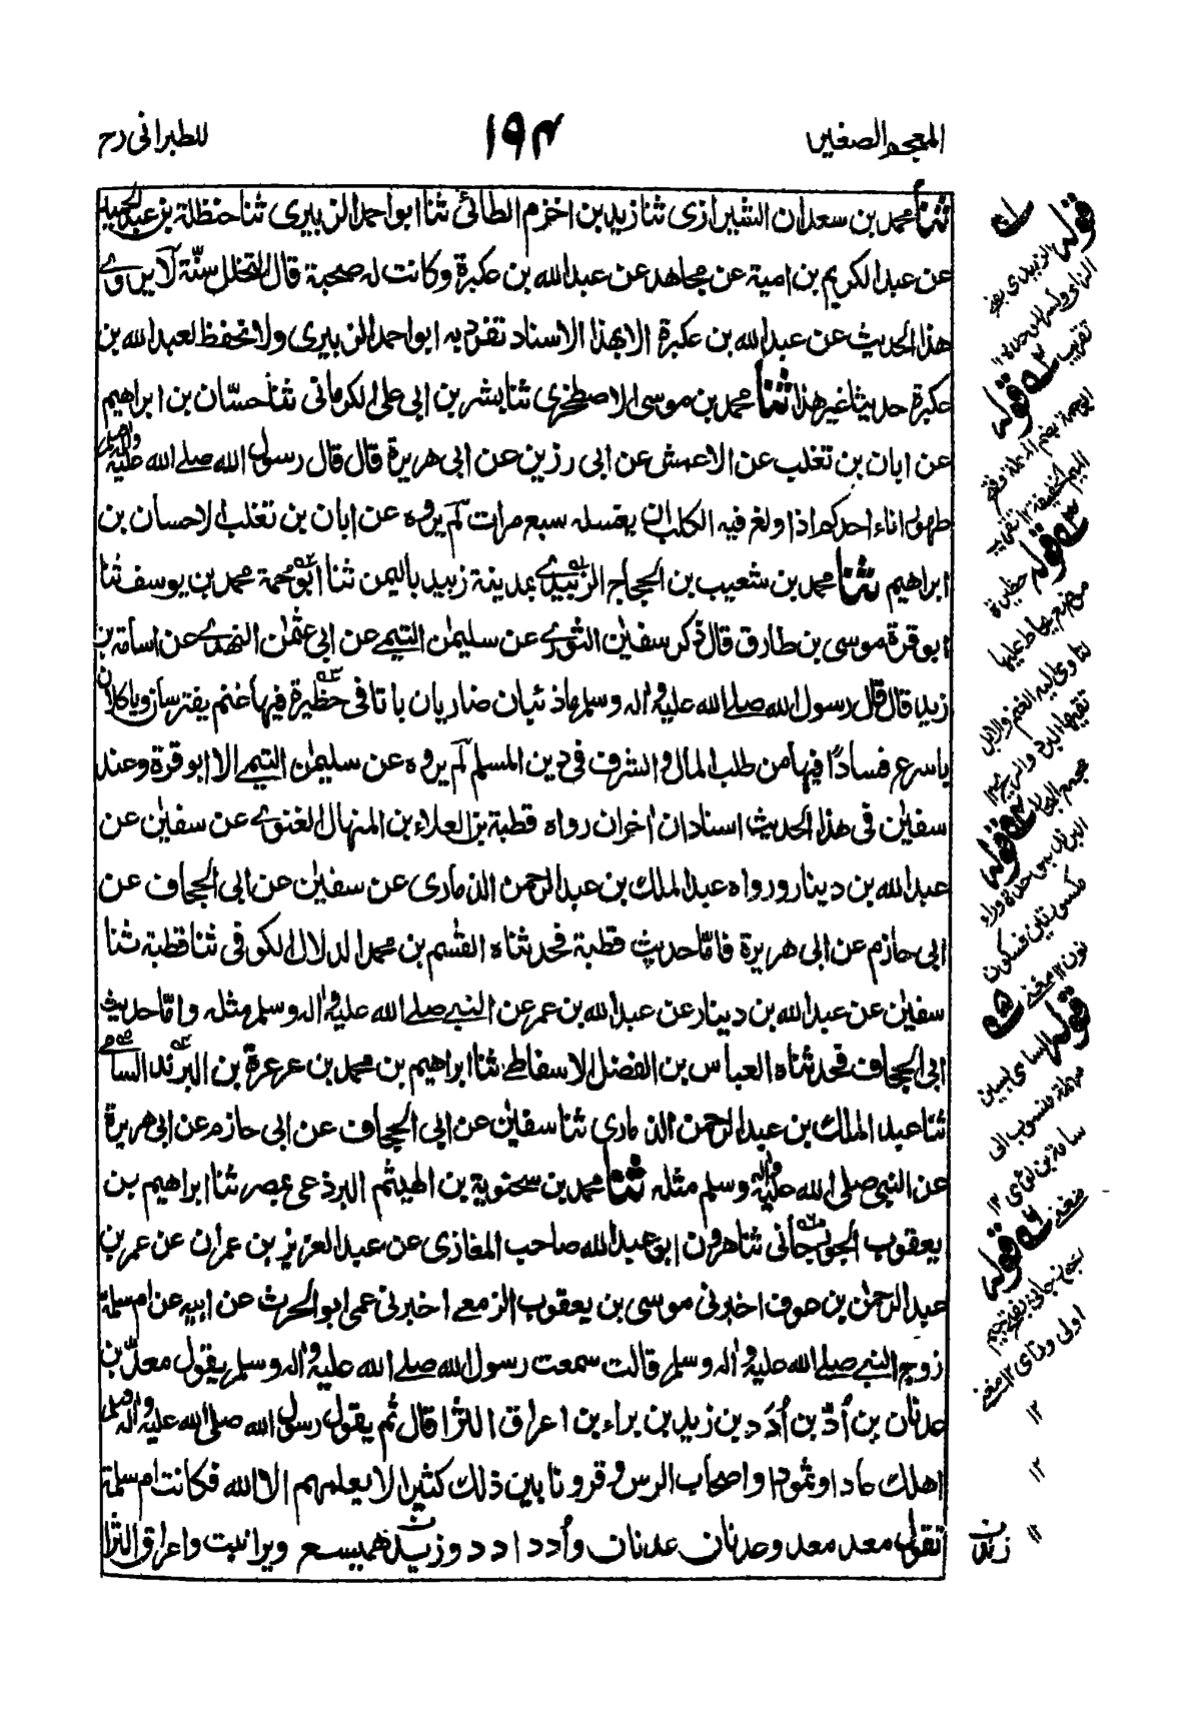 المعجم الصغير
۱۹۴
للطبرانی رح
ثنا محمد بن سعدان الشيرازی ثنا زيد بن اخزم الطائی ثنا ابو احمد الزبيری ثنا حنظلة بن عبد الحميد
عن عبد الكريم بن امية عن مجاهد عن عبد الله بن عكبرة وكانت له صحبة قال التخلل سنّة لا يروی
هذا الحديث عن عبد الله بن عكبرة الا بهذا الاسناد تفرد به ابو احمد الزبيری ولا نحفظ لعبد الله بن
عكبرة حديثا غير هذا ثنا محمد بن موسی الاصطخری ثنا بشر بن ابی علی الكرمانی ثنا حسّان بن ابراهيم
عن ابان بن تغلب عن الاعمش عن ابی رزين عن ابی هريرة قال قال رسول الله صلے الله عليه واله وسلم
طهور اناء احدكم اذا ولغ فيه الكلب ان يغسله سبع مرات لم يروه عن ابان بن تغلب الا حسان بن
ابراهيم ثنا محمد بن شعيب بن الحجاج الزبيدے بمدينة زبيد باليمن ثنا ابو حمة محمد بن يوسف ثنا
ابو قرة موسی بن طارق قال ذكر سفيٰن الثورے عن سليمٰن التيمے عن ابی عثمٰن النهدے عن اسامة بن
زيد قال قال رسول الله صلے الله عليه واله وسلم ما ذئبان ضاريان باتا فی حظيرة فيها غنم يفترسان وياكلان
باسرع فسادًا فيها من طلب المال والشرف فی دين المسلم لم يروه عن سليمٰن التيمے الا ابو قرة وعند
سفيٰن فی هذا الحديث اسنادان اخران رواه قطبة بن العلاء بن المنهال الغنوے عن سفيٰن عن
عبد الله بن دينار ورواه عبد الملك بن عبد الرحمن الذماری عن سفيٰن عن ابی الحجاف عن
ابی حازم عن ابی هريرة فامّا حديث قطبة فحدثناه القٰسم بن محمد الدلال الكوفی ثنا قطبة ثنا
سفيٰن عن عبد الله بن دينار عن عبد الله بن عمر عن النبے صلے الله عليه واله وسلم مثله وامّا حديث
ابی الحجاف فحدثناه العباس بن الفضل الاسفاطے ثنا ابراهيم بن محمد بن عرعرة بن البرند السامے
ثنا عبد الملك بن عبد الرحمن الذماری ثنا سفيٰن عن ابی الحجاف عن ابی حازم عن ابی هريرة
عن النبی صلی الله عليه واله وسلم مثله ثنا محمد بن سخنوية بن الهيثم البرذعی بمصر ثنا ابراهيم بن
يعقوب الجوزجانی ثنا هرون ابو عبد الله صاحب المغازی عن عبد العزيز بن عمران عن عمر بن
عبد الرحمٰن بن عوف اخبرنی موسی بن يعقوب الزمعے اخبرنی عمی ابو الحرث عن ابيه عن ام سلمة
زوج النبے صلے الله عليه واله وسلم قالت سمعت رسول الله صلے الله عليه واله وسلم يقول معدّ بن
عدنان بن اُدّ بن اُدَد بن زيد بن براء بن اعراق الثرا قال ثم يقول رسول الله صلی الله عليه واله وسلم
اهلك عادا وثمودا واصحاب الرس وقرونا بين ذلك كثيرا لا يعلمهم الا الله فكانت ام سلمة
تقول معد معد وعدنان عدنان واُدد ادد وزيد هميسع ويرا نبت واعراق الثرا
قوله الزبيدی بفتح
الزای وكسر
تقريب
قوله
ابو حمة بضم المهملة وفتح
الميم الخفيفة ۱۲ تقريب
قوله حظيرة
موضع يحاط عليها
لتاوی اليه الغنم والابل
تقيها البرد والريح ۱۲
مجمع البحار
قوله
نون ۱۲ مغنے
قوله السامی بسين
مهملة منسوب الی
سامة بن لؤی ۱۲
مغنے
قوله
اولی وزای ۱۲ مغنے
۱۲
۱۲
۱۲